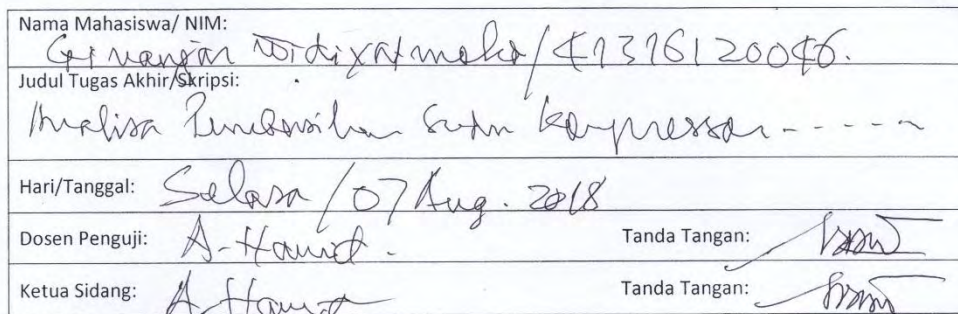 Nama Mahasiswa/ NIM:
Ginanjar Widiyatmoko/41316120046.
Judul Tugas Akhir/Skripsi:
Analisa Pembersihan Sudu Kompressor - - - - -
Hari/Tanggal: Selasa / 07 Aug. 2018
Dosen Penguji: A-Hamid. Tanda Tangan:
Ketua Sidang: A-Hamid Tanda Tangan: